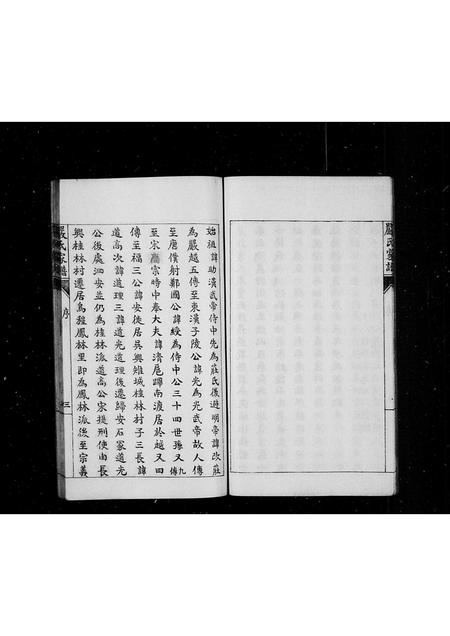 嚴氏家譜
始祖諱助漢武帝侍中先為莊氏後避明帝諱改莊
為嚴越五傳至東漢子陵公諱光為光武帝故人傳
至唐僕射鄭國公諱綬為侍中公三十四世孫又九傳
至宋高宗時中奉大夫諱濟扈蹕南渡居於越又四
傳至福三公諱安徙居吳興雉城桂林村子三長諱
道高次諱道理三諱道光道理後遷歸安石冢道光
公後處泗安並仍為桂林派道高公宋提刑使由長
興桂林村遷居烏程鳳林里即為鳳林派後至宗義
嚴氏家譜
序
三